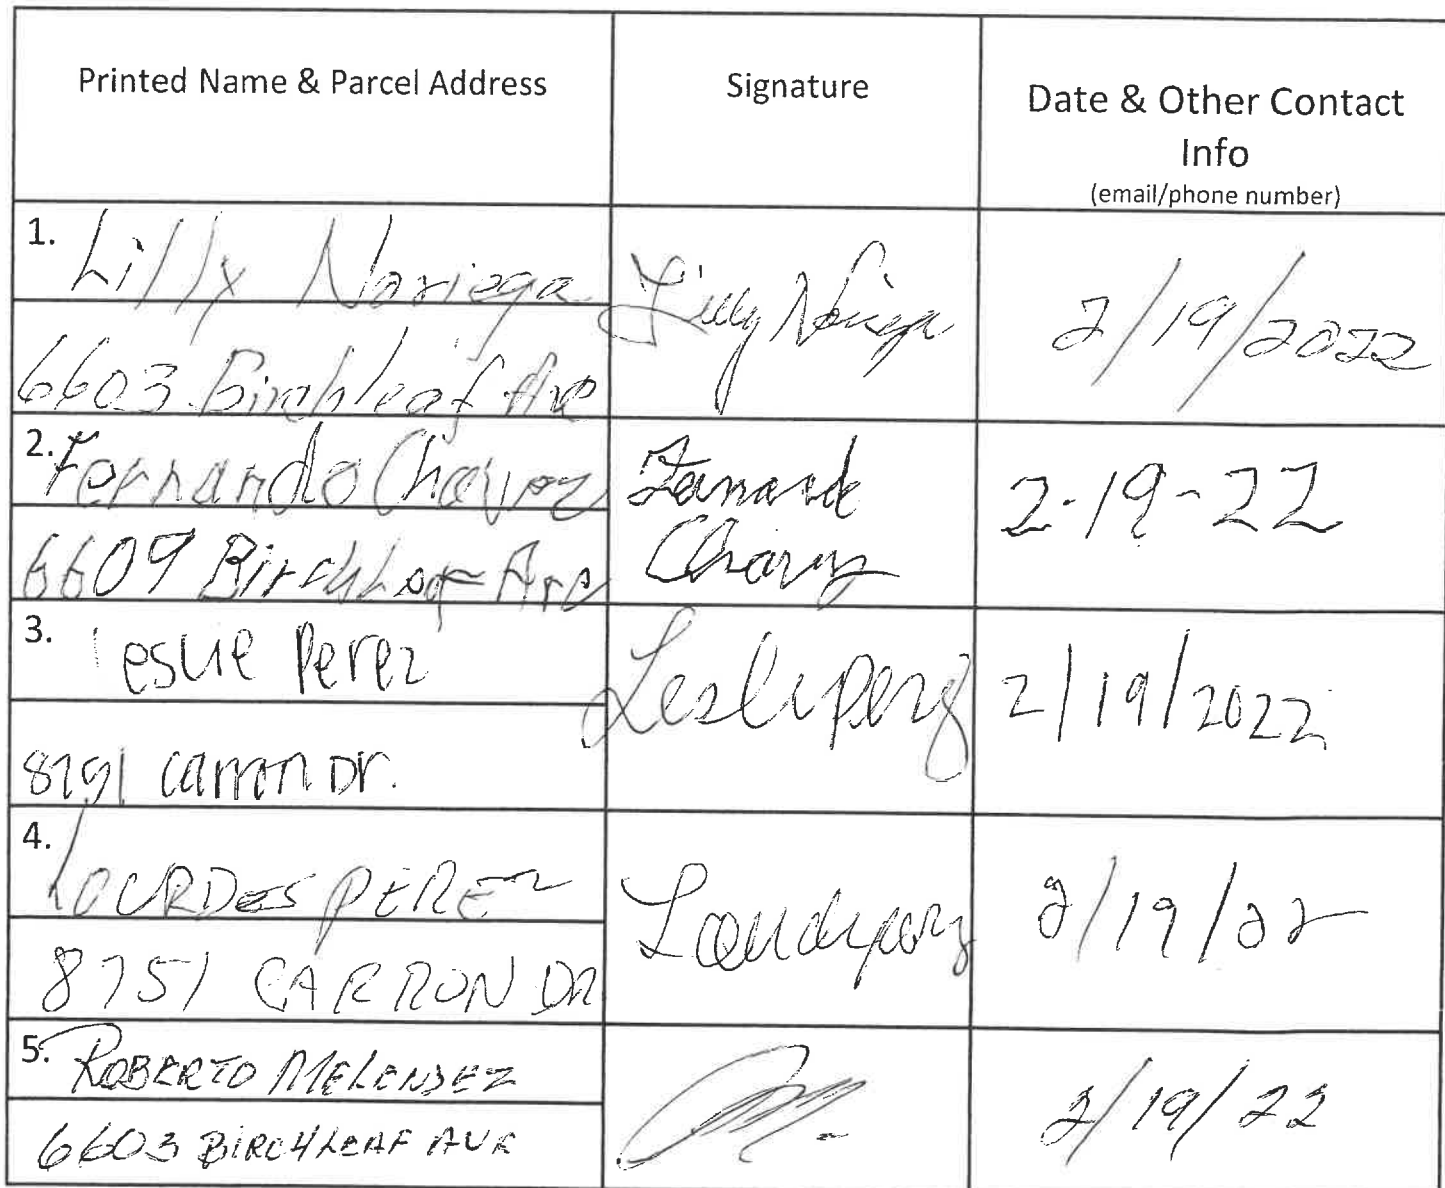 Printed Name & Parcel Address
Signature
Date & Other Contact
Info
(email/phone number)
1. Lilly Noriega
6603 Birchleaf Ave
Lilly Noriega
2/19/2022
2. Fernando Chavez
6609 Birchleaf Ave
Fernando
Chavez
2-19-22
3. Leslie Perez
8791 Carron Dr.
Leslie Perez
2/19/2022
4. LOURDES PEREZ
8751 CARRON DR
2/19/22
5. ROBERTO MELENDEZ
6603 BIRCHLEAF AVE
2/19/22